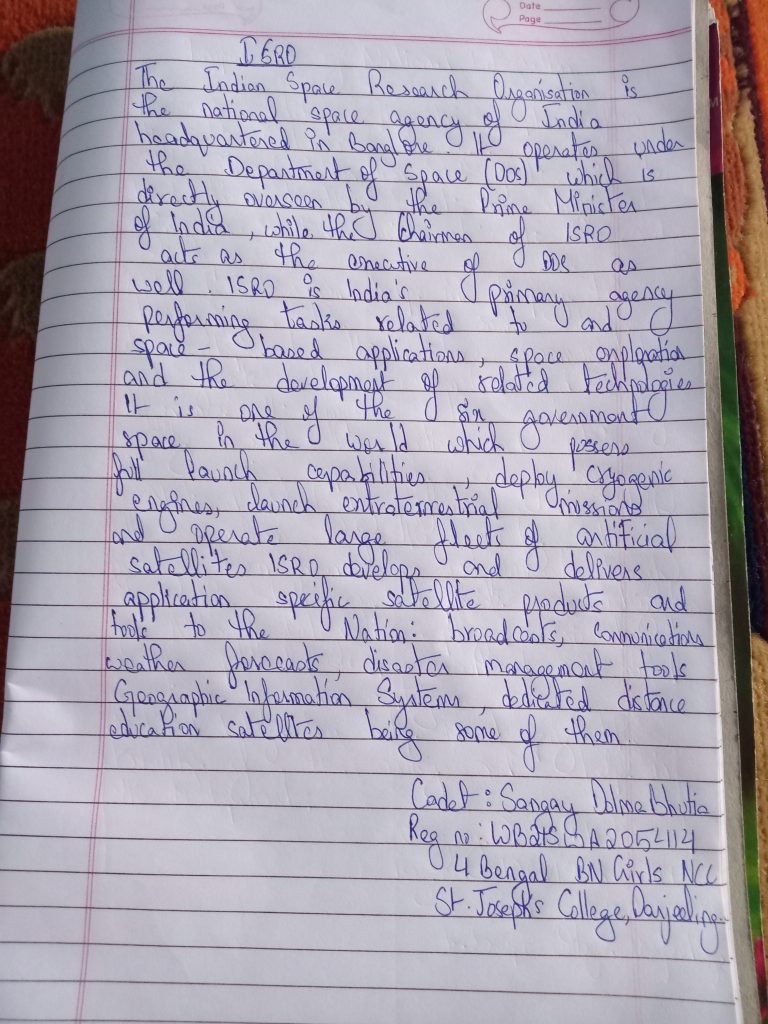 Date
Page
ISRO
The Indian Space Research Organisation is
the national space agency of India
headquartered in Banglore. It operates under
the Department of Space (DOS) which is
directly overseen by the Prime Minister
of India, while the Chairman of ISRO
acts as the executive of DOS as
well. ISRO is India's primary agency
performing tasks related to and
space- based applications, space exploration
and the development of related technologies
It is one of the six government
space in the world which possess
full launch capabilities, deploy cryogenic
engines, launch extraterrestrial missions
and operate large fleets of artificial
satellites ISRO develops and delivers
application specific satellite products and
tools to the Nation: broadcasts, communications
weather forecasts, disaster management tools
Geographic Information Systems, dedicated distance
education satellites being some of them.
Cadet: Sangay Dolma Bhutia
Reg no:
4 Bengal BN Girls NCC
St. Joseph's College, Darjeeling